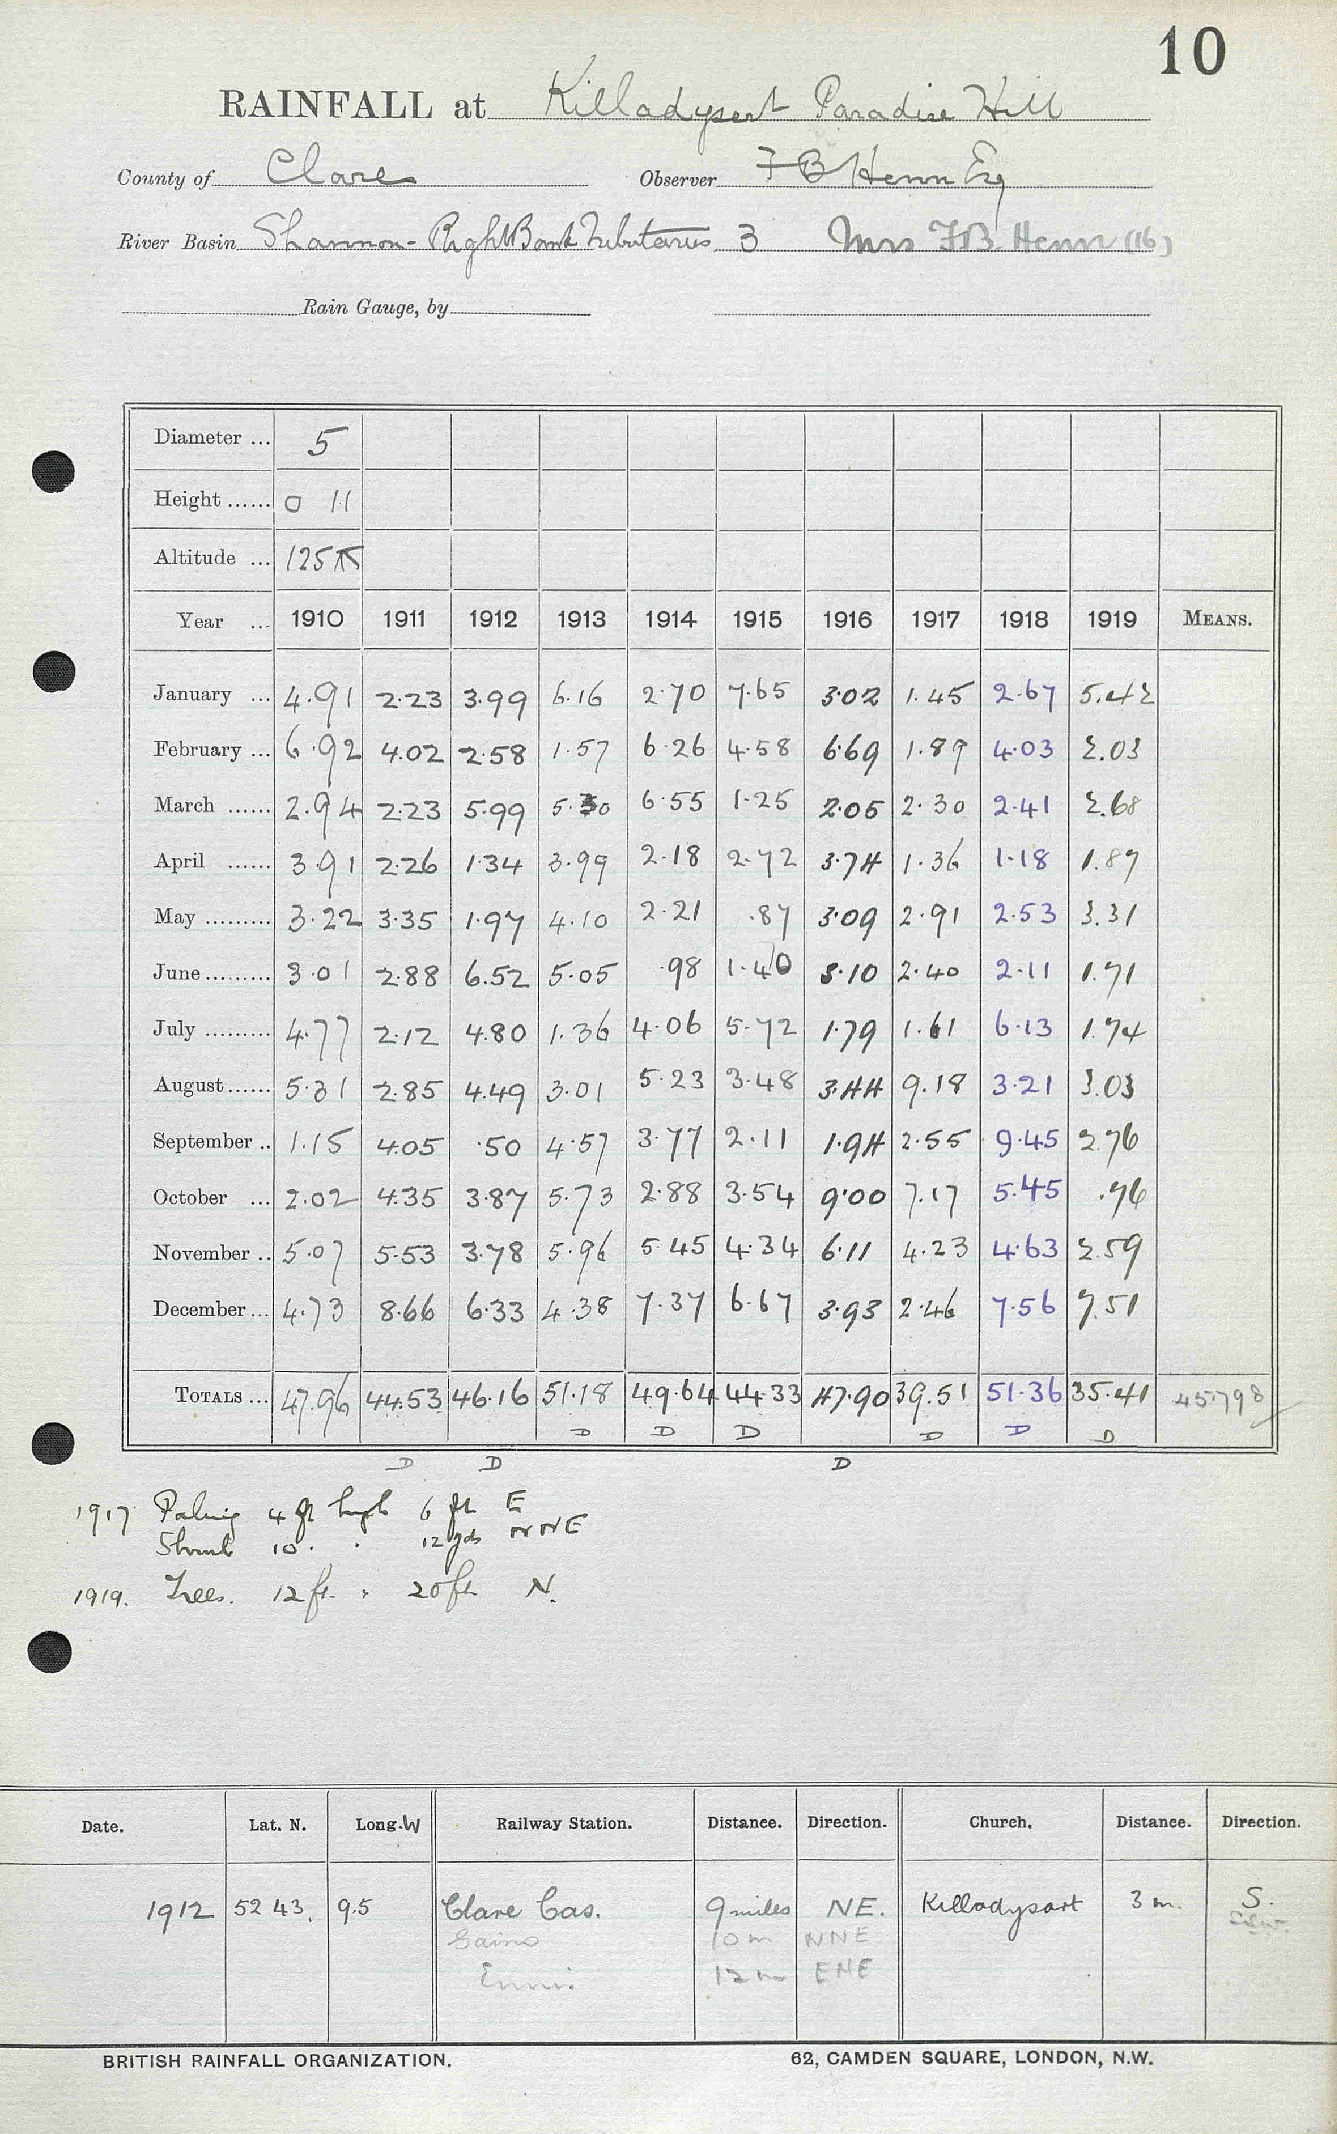 10
RAINFALL at Killadysert Paradise Hill
County of Clare Observer F B Henn Esq
River Basin Shannon - Right Bank Tributaries 3 Mrs F B Henn (16)
Rain Gauge, by
Diameter ... 5
Height ...... 0 11
Altitude ... 125 ft
Year ... 1910 1911 1912 1913 1914 1915 1916 1917 1918 1919 MEANS.
January ... 4.91 2.23 3.99 6.16 2.70 7.65 3.02 1.45 2.67 5.42
February ... 6.92 4.02 2.58 1.57 6.26 4.58 6.69 1.89 4.03 2.03
March ...... 2.94 2.23 5.99 5.30 6.55 1.25 2.05 2.30 2.41 2.68
April ...... 3.91 2.26 1.34 3.99 2.18 2.72 3.74 1.36 1.18 1.87
May ......... 3.22 3.35 1.97 4.10 2.21 .87 3.09 2.91 2.53 3.31
June ......... 3.01 2.88 6.52 5.05 .98 1.40 3.10 2.40 2.11 1.71
July ......... 4.77 2.12 4.80 1.36 4.06 5.72 1.79 1.61 6.13 1.74
August ...... 5.31 2.85 4.49 3.01 5.23 3.48 3.44 9.18 3.21 3.03
September .. 1.15 4.05 .50 4.57 3.77 2.11 1.94 2.55 9.45 2.76
October ... 2.02 4.35 3.87 5.73 2.88 3.54 9.00 7.17 5.45 .76
November .. 5.07 5.53 3.78 5.96 5.45 4.34 6.11 4.23 4.63 2.59
December ... 4.73 8.66 6.33 4.38 7.37 6.67 3.93 2.46 7.56 7.51
TOTALS ... 47.96 44.53 46.16 51.18 49.64 44.33 47.90 39.51 51.36 35.41 45.798
D D D D D D
D D D
1917 Paling 4 ft high 6 ft E
Shrub 10 . . 12 yds NNE
1919. Trees. 12 ft. " 20 ft. N.
Date. Lat. N. Long. W Railway Station. Distance. Direction. Church. Distance. Direction.
1912 52 43. 9.5 Clare Cas. 9 miles NE. Killadysart 3 m. S.
10 m NNE
Ennis 12 m ENE
BRITISH RAINFALL ORGANIZATION. 62, CAMDEN SQUARE, LONDON, N.W.